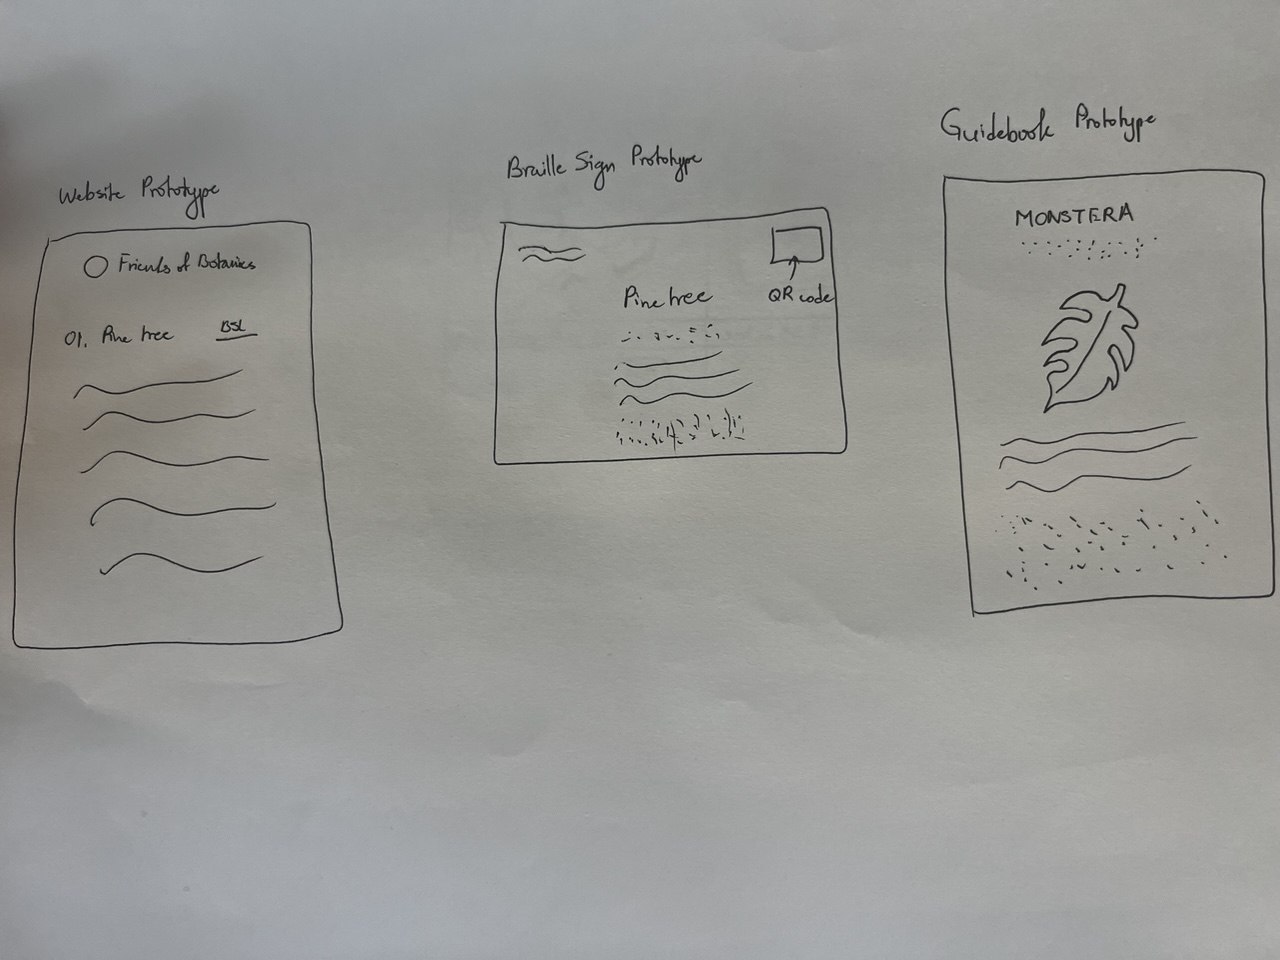 Website Prototype
Friends of Botanics
01. Pine tree BSL
Braille Sign Prototype
QR code
Pine tree
Guidebook Prototype
MONSTERA